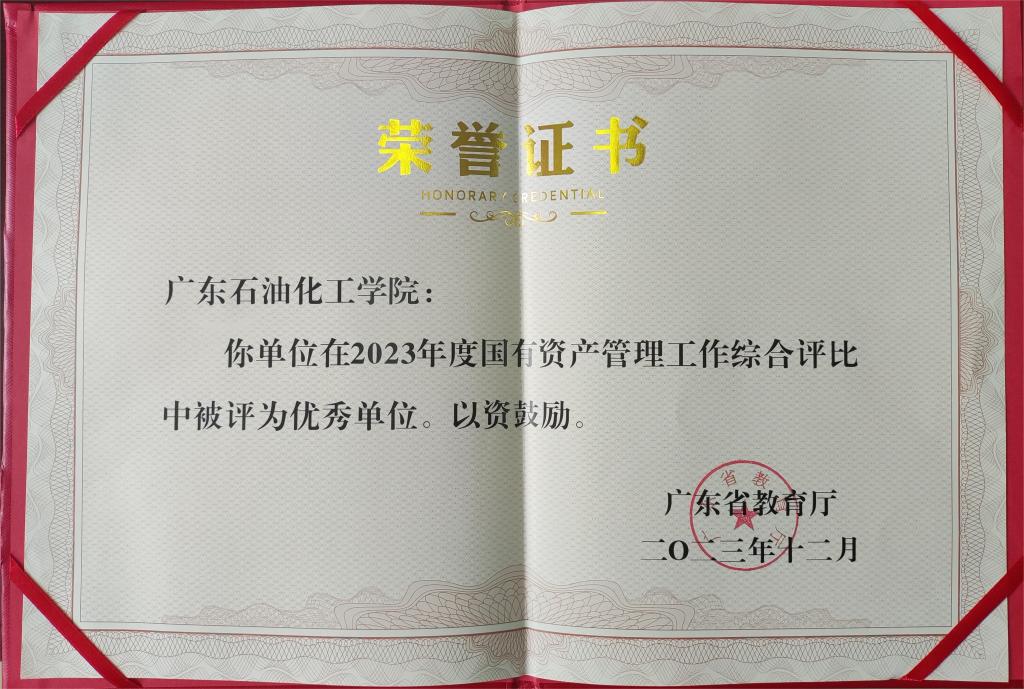 荣誉证书
HONORARY CREDENTIAL
广东石油化工学院：
你单位在2023年度国有资产管理工作综合评比
中被评为优秀单位。以资鼓励。
广东省教育厅
二O二三年十二月